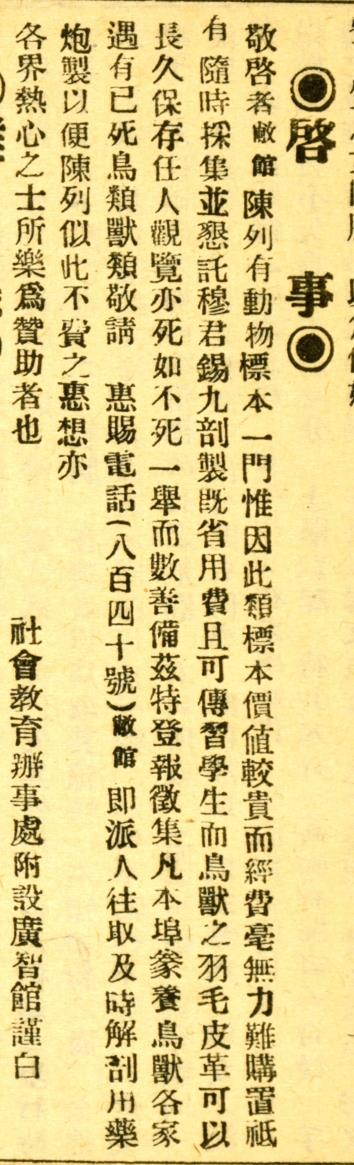 ◉啓　事◉
敬啓者敝館陳列有動物標本一門惟因此類標本價値較貴而經費毫無力難購置祇
有隨時採集並懇託穆君錫九剖製旣省用費且可傳習學生而鳥獸之羽毛皮革可以
長久保存任人觀覽亦死如不死一舉而數善備茲特登報徵集凡本埠豢養鳥獸各家
遇有已死鳥類獸類敬請　惠賜電話(八百四十號)敝館卽派人往取及時解剖用藥
炮製以便陳列似此不費之惠想亦
各界熱心之士所樂爲贊助者也
社會教育辦事處附設廣智館謹白